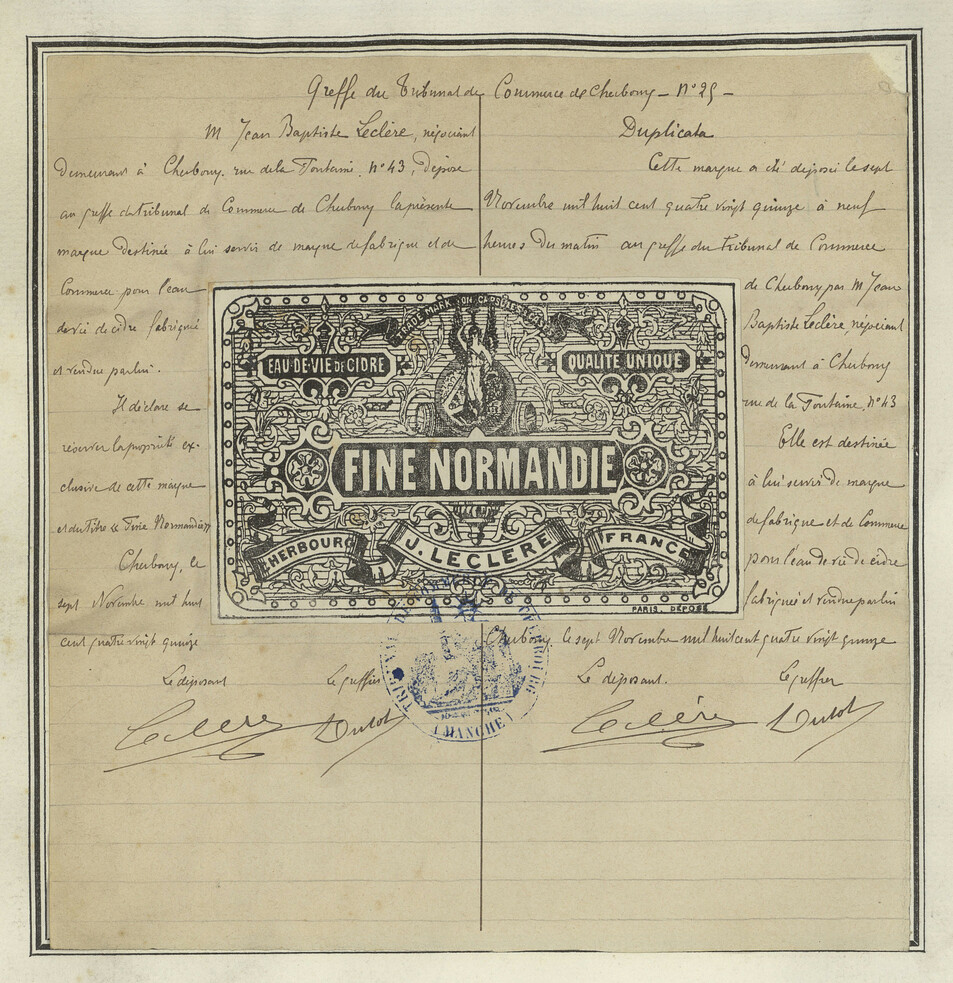 Greffe du Tribunal de Commerce de Cherbourg — N° 25 —
M Jean Baptiste Leclère, négociant
demeurant à Cherbourg, rue de la Fontaine, N° 43, dépose
au greffe du tribunal de Commerce de Cherbourg la présente
marque destinée à lui servir de marque de fabrique et de
Commerce pour l'eau
de vie de cidre fabriquée
et vendue par lui.
Il déclare se
réserver la propriété ex-
clusive de cette marque
et du titre « Fine Normandie »
Cherbourg, le
sept Novembre mil huit
cent quatre vingt quinze
Le déposant Le greffier
Leclère Dutot
Duplicata
Cette marque a été déposée le sept
Novembre mil huit cent quatre vingt quinze à neuf
heures du matin au greffe du Tribunal de Commerce
de Cherbourg par M Jean
Baptiste Leclère, négociant
demeurant à Cherbourg
rue de la Fontaine, N° 43
Elle est destinée
à lui servir de marque
de fabrique et de Commerce
pour l'eau de vie de cidre
fabriquée et vendue par lui
Cherbourg le sept Novembre mil huit cent quatre vingt quinze
Le déposant. Le greffier
Leclère Dutot
TRADE MARK
EAU-DE-VIE DE CIDRE
QUALITÉ UNIQUE
FINE NORMANDIE
CHERBOURG
J. LECLÈRE
FRANCE
PARIS. DÉPOSÉ
(MANCHE)